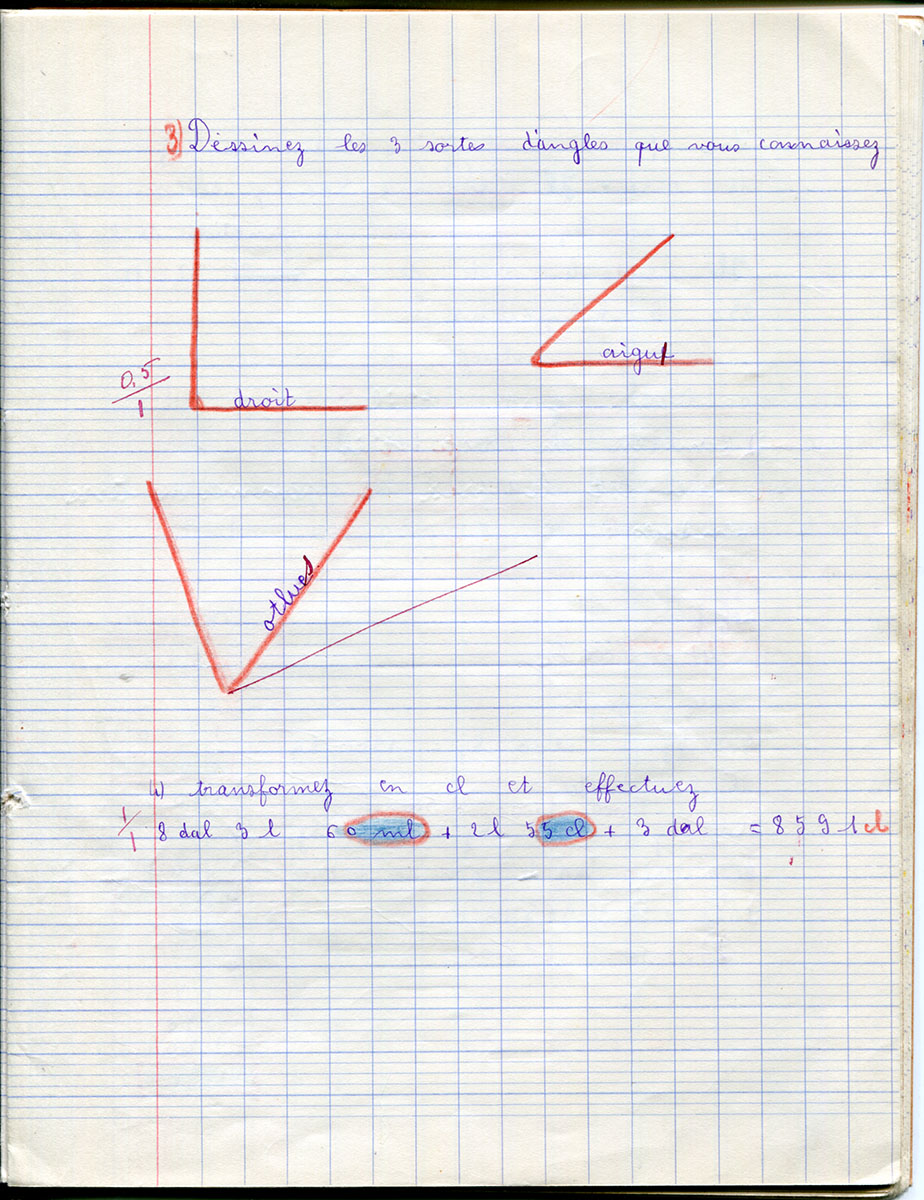 3) Dessinez les 3 sortes d'angles que vous connaissez
aigu
0,5
1
droit
othues
4) transformez en cl et effectuez
1/1 8 dal 3 l 60 ml + 2l 55 cl + 3 dal = 8591cl